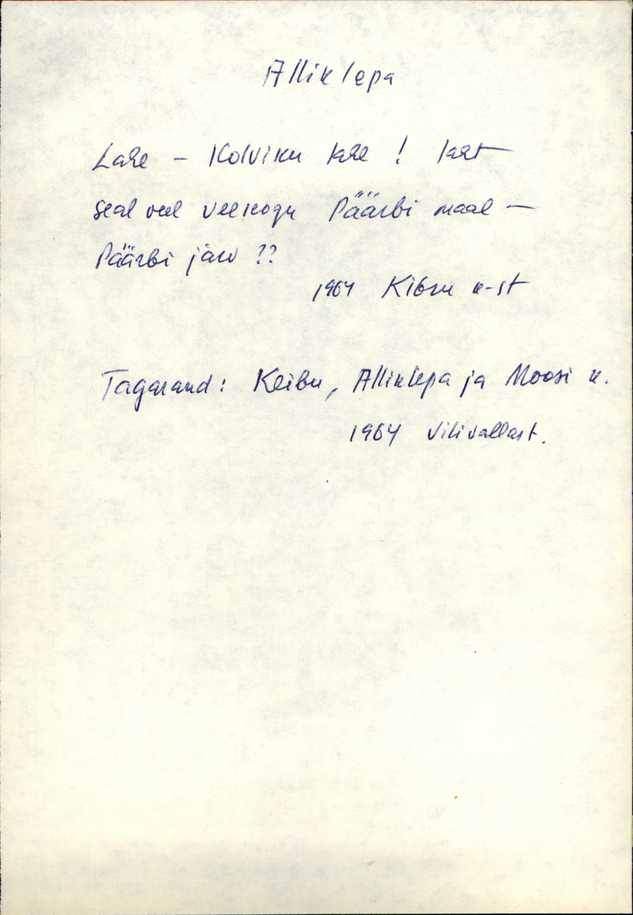 Alliklepa
Lahe - Kolviku lahe !
seal veel veekogu Päärbi maal -
Päärbi järv ??
1964 Kibru k-st
Tagarand: Keibu, Alliklepa ja Moosi k.
1964 Vilivallast.